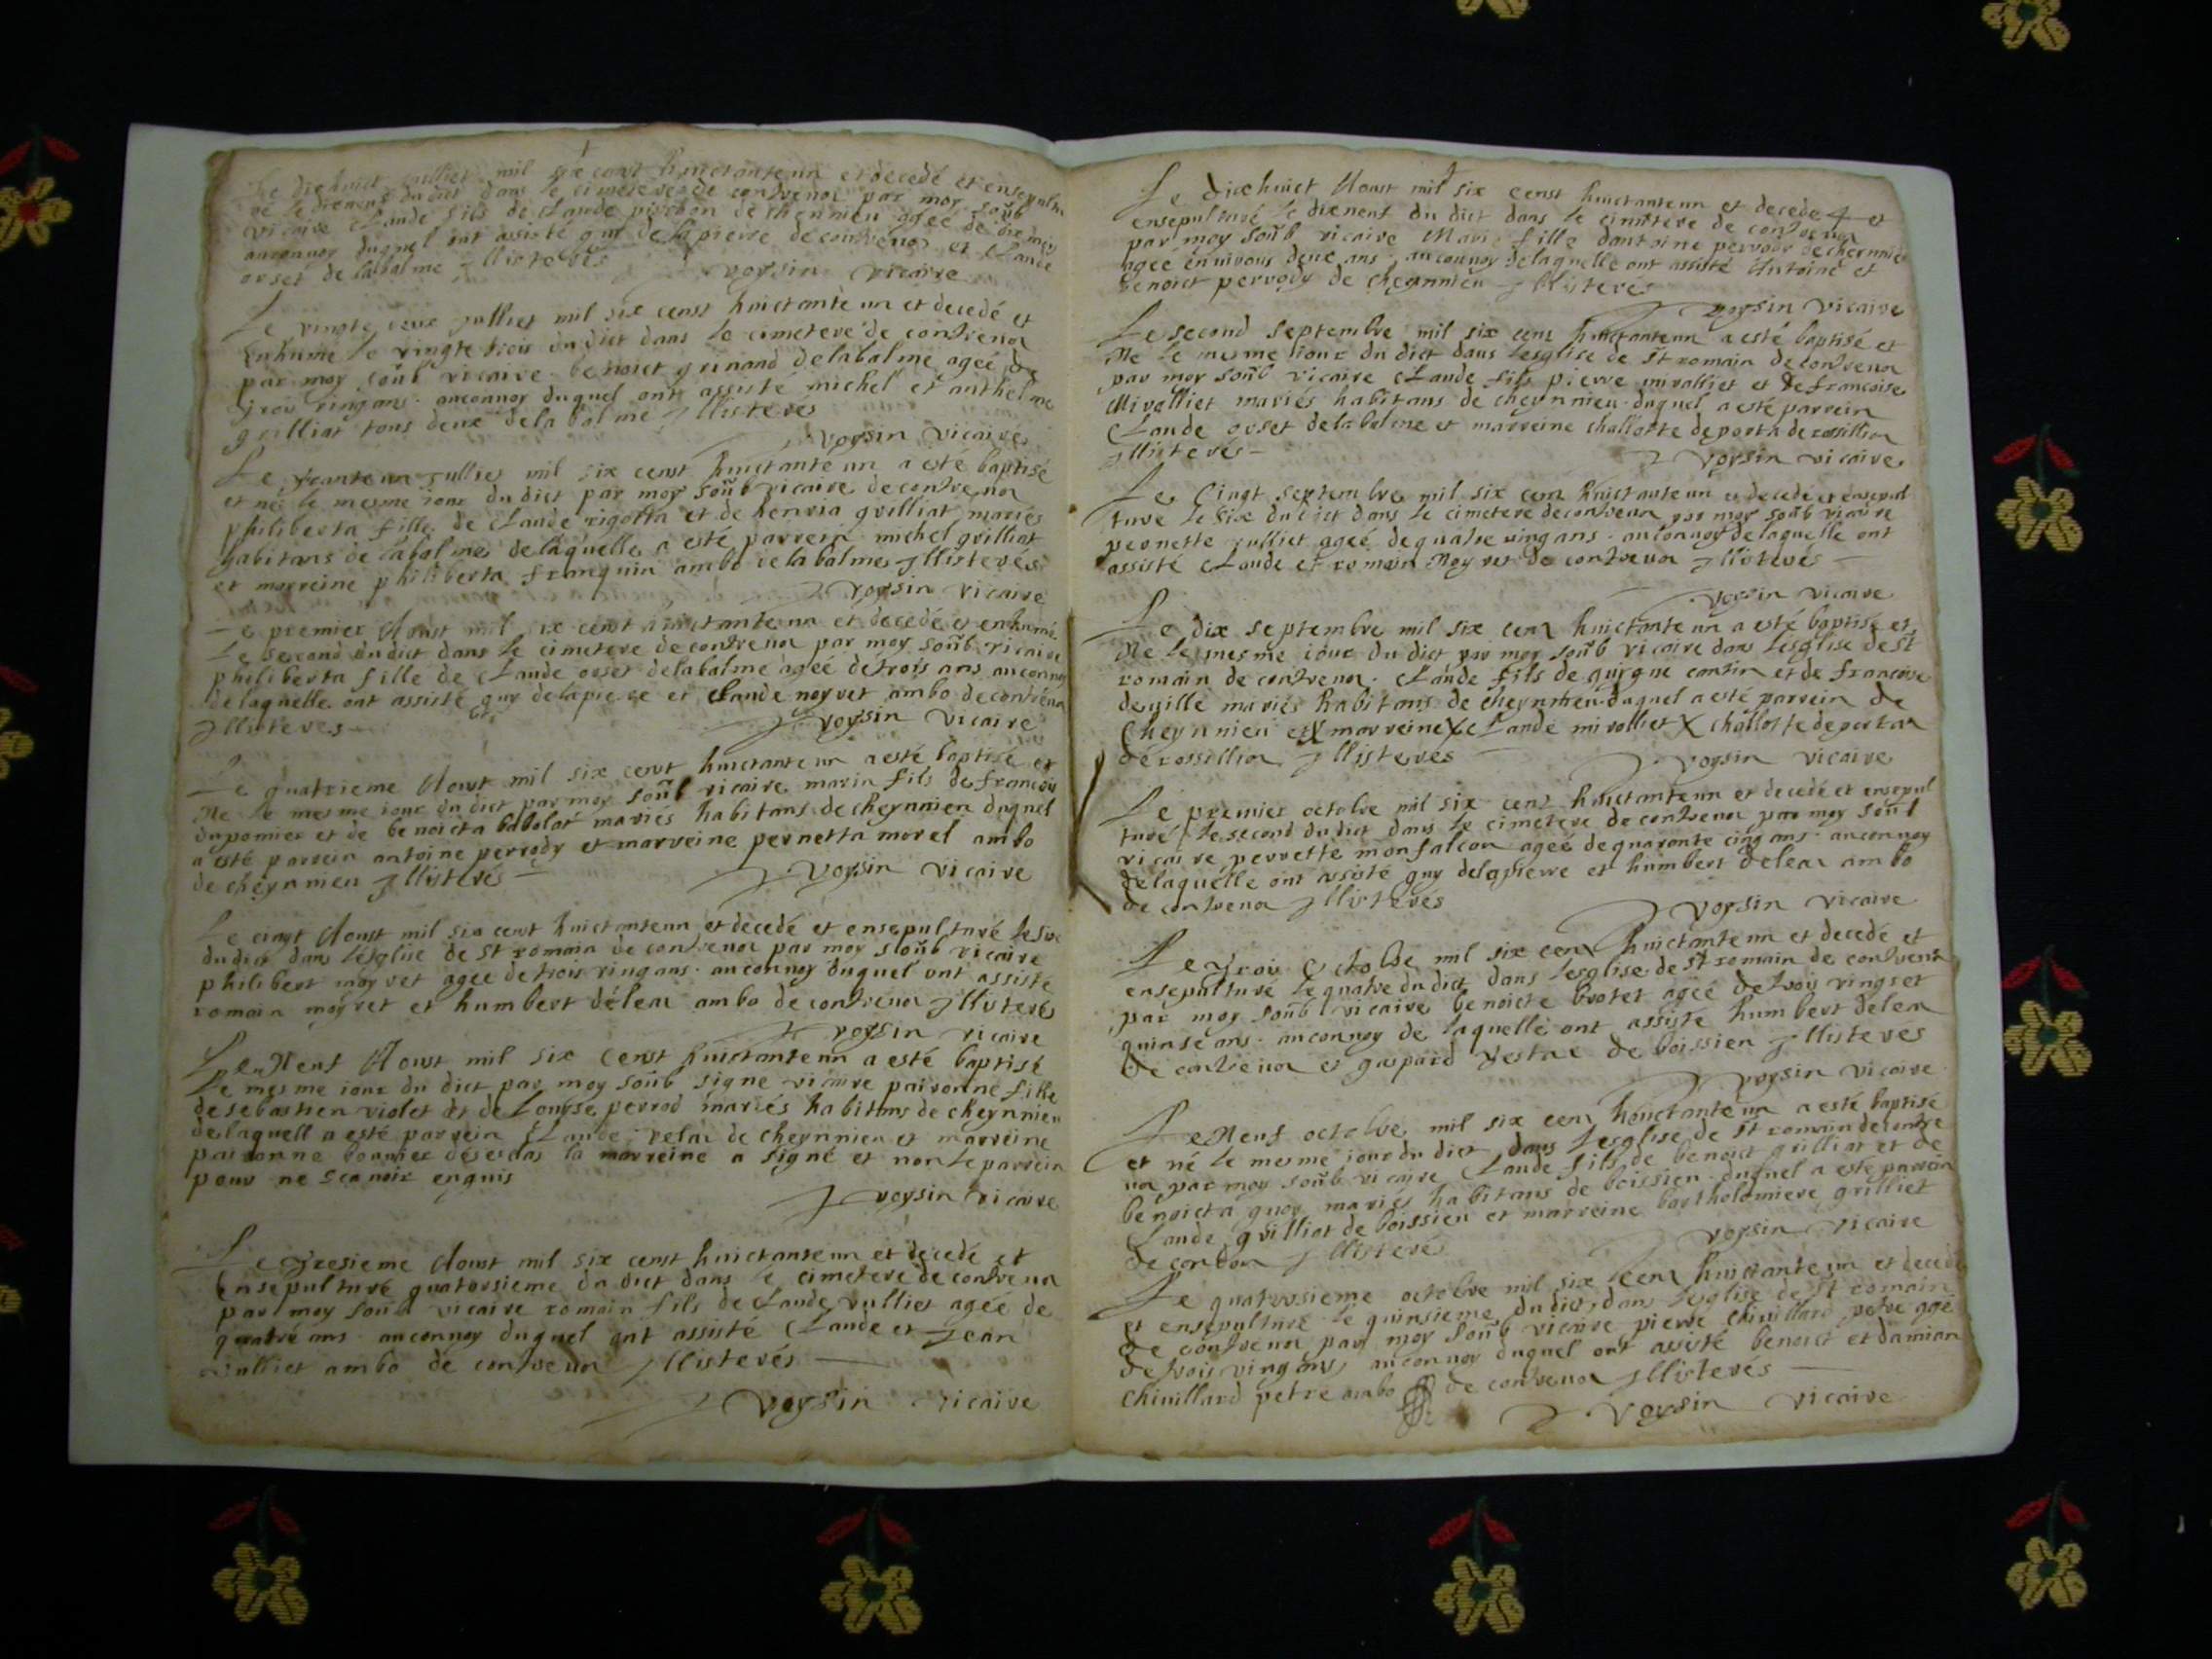 Le dixhuict julliet mil six censt huictanteun et decedé et ensepultu
ré le dixneuf du dict dans le cimetere de contrevoz par moy soub
vicaire Claude fils de Claude pinchon de cheynnieu ageé de
anconnoy duquel ont assisté guy delapierre de contrevoz et Claude
orset de labalme Jllisterés
voysin vicaire
Le vingte deux julliet mil six censt huictante un et decedé et
Enhumé le vingte trois du dict dans le cimetere de contrevoz
par moy soub vicaire benoict grinand delabalme ageé de
trois vingans anconnoy duquel ont assisté michel et anthelme
grilliat tous deux delabalme Jllisterés
voysin vicaire
Le tranteun julliet mil six censt huictante un a esté baptisé
et né le mesme iour du dict par moy soub vicaire de contrevoz
philiberta fille de Claude rigotta et de henria grilliat mariés
habitans de labalme delaquelle a esté parrein michel grilliat
et marreine philiberta franquin ambo delabalme Jllisterés
voysin vicaire
Le premier Aoust mil six censt huictante un et decedé et enhumé
le second du dict dans le cimetere de contrevoz par moy soub vicaire
philiberta fille de Claude orset delabalme ageé de trois ans anconnoy
delaquelle ont assisté guy delapierre et Claude noyret ambo decontrevoz
Jllisteres
voysin vicaire
Le quatrieme Aoust mil six censt huictante un a esté baptisé et
Ne le mesme iour du dict par moy soub vicaire marin fils de francois
dupomier et de benoicta babolat mariés habitans de cheynnieu duquel
a esté parrein antoine perrody et marreine pernetta morel ambo
de cheynnieu Jllisterés
voysin vicaire
Le cinqt Aoust mil six censt huictanteun et decedé et ensepulturé le six
du dict dans lesglise de St romain de contrevoz par moy soub vicaire
philibert moyret ageé detrois vingans anconnoy duquel ont assisté
romain moyret et humbert deleaz ambo de contrevoz Jllisterés
voysin vicaire
Le Neuf Aoust mil six censt huictante un a esté baptisé
le mesme iour du dict par moy soub signe vicaire paironne fille
desebastien violet et de Louyse perrod mariés habitans de cheynnieu
delaquell a esté parrein Claude de cheynnieu et marreine
paironne bonnier la marreine a signé et non le parrein
pour ne scanoir enquis
voysin vicaire
Le tresieme Aoust mil six censt huictanteun et decedé et
Ensepulturé quatorsieme du dict dans le cimetere de contrevoz
par moy soub vicaire romain fils de Claude julliet ageé de
quatre ans anconnoy duquel ont assisté Claude et Jean
julliet ambo de contrevoz Jllisterés
voysin vicaire
Le dixhuict Aoust mil six censt huictanteun et decedé et
ensepulturé le dixneuf du dict dans le cimetere de contrevoz
par moy soub vicaire Marie fille dantoine perrody de cheynnieu
ageé enuirons deux ans anconnoy delaquelle ont assisté Antoine et
benoict perrody de cheynnieu Jllisterés
voysin vicaire
Le second septembre mil six cens huictanteun a esté baptisé et
Ne le mesme iour du dict dans lesglise de St romain de contrevoz
par moy soub vicaire Claude fils pierre miralliet et de francoise
Miralliet mariés habitans de cheynnieu duquel a esté parrein
Claude orset delabalme et marreine challotte deporta de rossillion
Jllisterés
voysin vicaire
Le Cinqt septembre mil six cens huictanteun et decedé et ensepul
turé le six du dict dans le cimetere decontrevoz par moy soub vicaire
pernette julliet ageé dequatre uingans anconnoy delaquelle ont
assisté Claude et romain Moyret de contrevoz Jllisterés
voysin vicaire
Le dix septembre mil six cens huictante un a esté baptisé et
Ne le mesme iour du dict par moy soub vicaire dans lesglise de St
romain de contrevoz Claude fils de guigue cantin et de francoise
deuille mariés habitans de cheynnieu duquel a esté parrein de
Cheynnieu et marreine X Claude miralliet X challotte deportaz
de rossillion Jllisterés
voysin vicaire
Le premier octobre mil six cens huictanteun et decedé et ensepul
turé le second du dict dans le cimetere de contrevoz par moy soub
vicaire perrette monfalcon ageé dequarante cinq ans anconnoy
delaquelle ont assisté guy delapierre et humbert deleaz ambo
de contrevoz Jllisterés
voysin vicaire
Le trois Octobre mil six cens huictante un et decedé et
ensepulturé le quatre du dict dans lesglise de St romain de contrevoz
par moy soub vicaire benoicte brotet ageé detrois vingset
quinse ans anconnoy de laquelle ont assisté humbert deleaz
de contrevoz et gaspard de boissieu Jllisterés
voysin vicaire
Le Neuf octobre mil six cens huictante un a esté baptisé
et né le mesme iour du dict dans lesglise de St romain de contre
voz par moy soub vicaire Claude fils de benoict grilliat et de
benoicta guoy mariés habitans de boissieu duquel a esté parrein
Claude grilliat de boissieu et marreine bartholomiere grilliet
de condon Jllisteré
voysin vicaire
Le quatorsieme octobre mil six cens huictante un et decedé
et ensepulturé le quinsieme du dict dans lesglise de St romain
de contrevoz par moy soub vicaire pierre Chiuillard petre ageé
detrois vingans anconnoy duquel ont assisté benoict et damian
Chiuillard petre ambo de contrevoz Jllisterés
voysin vicaire